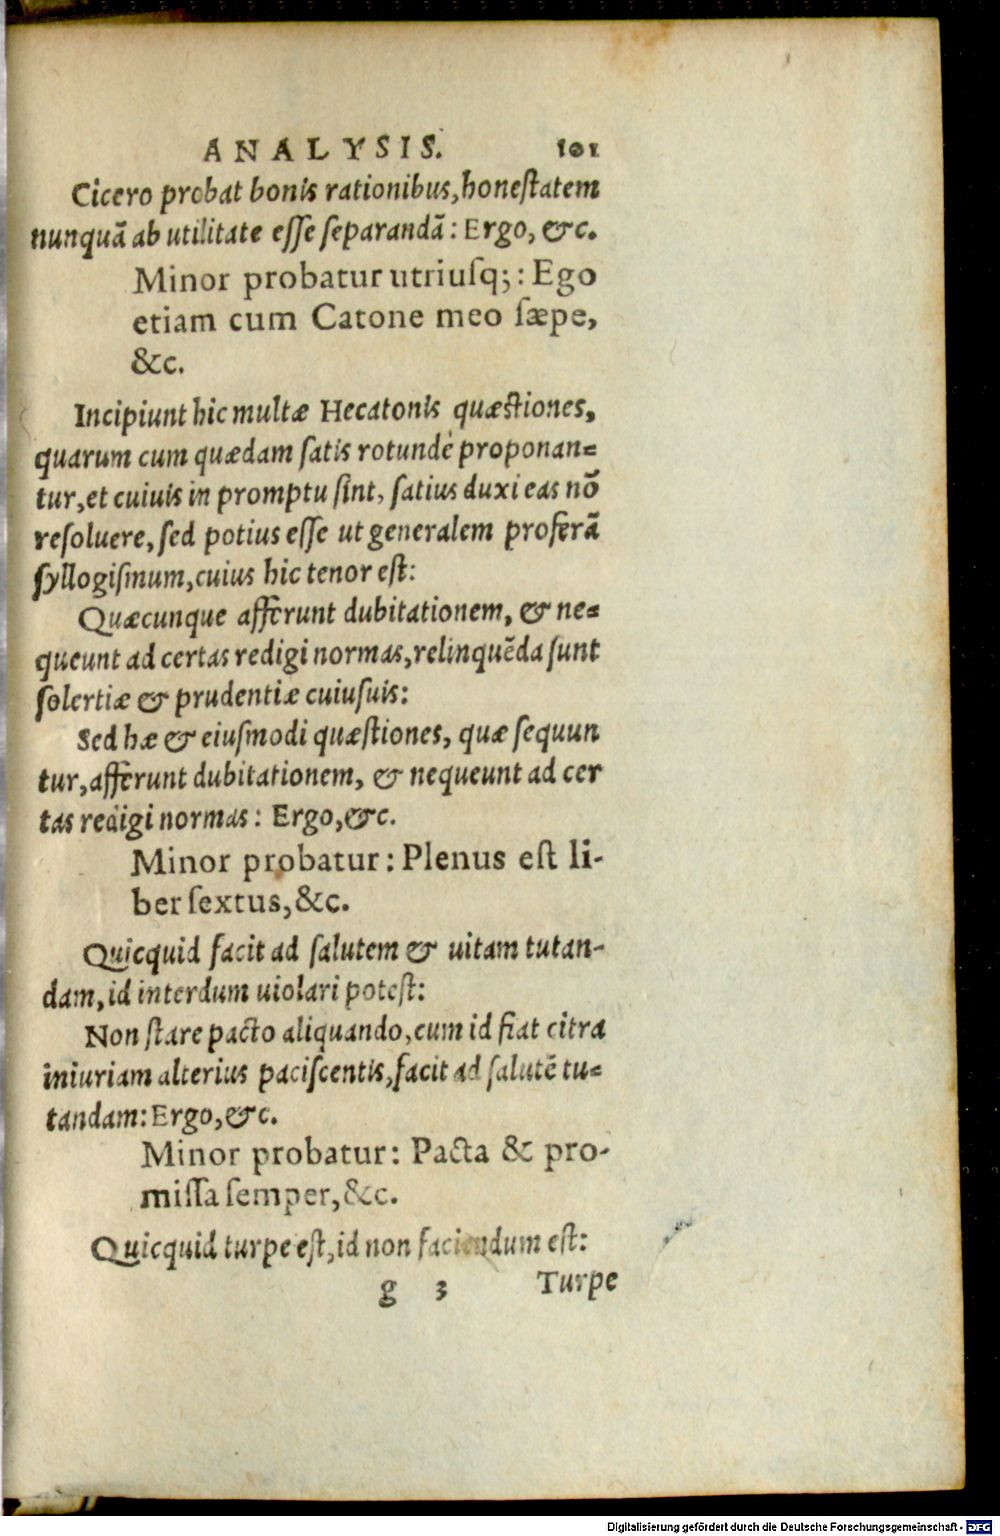 ANALYSIS. 101
Cicero probat bonis rationibus, honestatem
nunquã ab utilitate esse separandã: Ergo, &c.
Minor probatur utriusq;: Ego
etiam cum Catone meo sæpe,
&c.
Incipiunt hic multæ Hecatonis quæstiones,
quarum cum quædam satis rotundè proponan=
tur, et cuiuis in promptu sint, satius duxi eas nõ
resoluere, sed potius esse ut generalem proferã
syllogismum, cuius hic tenor est:
Quæcunque afferunt dubitationem, & ne=
queunt ad certas redigi normas, relinquẽda sunt
solertiæ & prudentiæ cuiusuis:
Sed hæ & eiusmodi quæstiones, quæ sequun
tur, afferunt dubitationem, & nequeunt ad cer
tas redigi normas: Ergo, &c.
Minor probatur: Plenus est li-
ber sextus, &c.
Quicquid facit ad salutem & uitam tutan-
dam, id interdum uiolari potest:
Non stare pacto aliquando, cum id fiat citra
iniuriam alterius paciscentis, facit ad salutẽ tu=
tandam: Ergo, &c.
Minor probatur: Pacta & pro-
missa semper, &c.
Quicquid turpe est, id non faciendum est:
g 3 Turpe
Digitalisierung gefördert durch die Deutsche Forschungsgemeinschaft - DFG